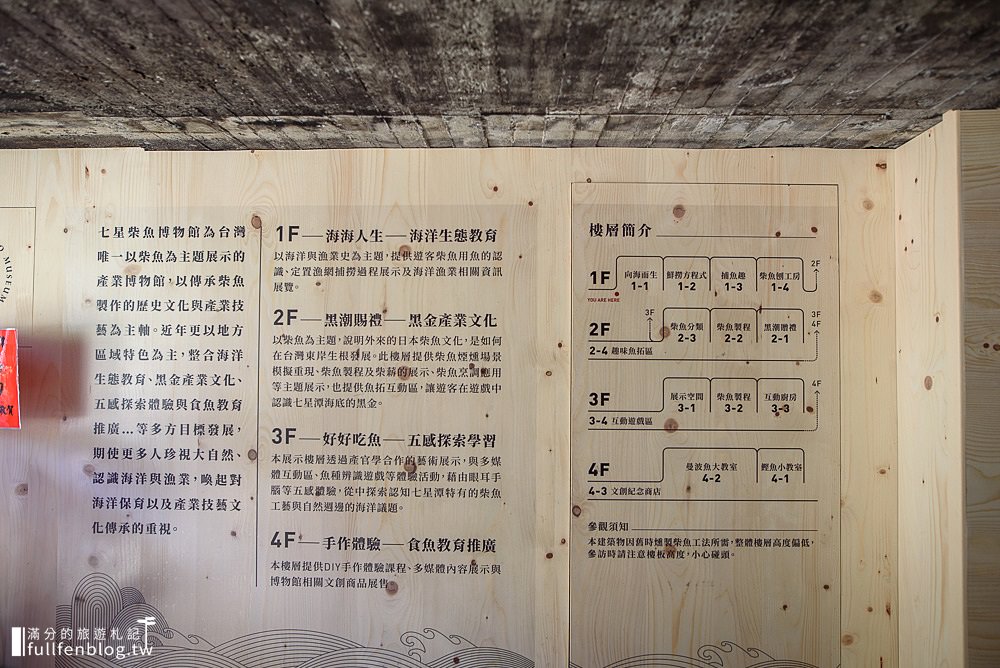 七星柴魚博物館為台灣
唯一以柴魚為主題展示的
產業博物館，以傳承柴魚
製作的歷史文化與產業技
藝為主軸。近年更以地方
區域特色為主，整合海洋
生態教育、黑金產業文化、
五感探索體驗與食魚教育
推廣...等多方目標發展，
期使更多人珍視大自然、
認識海洋與漁業，喚起對
海洋保育以及產業技藝文
化傳承的重視。
1F—海海人生—海洋生態教育
以海洋與漁業史為主題，提供遊客柴魚用魚的認
識、定置漁網捕撈過程展示及海洋漁業相關資訊
展覽。
2F—黑潮賜禮—黑金產業文化
以柴魚為主題，說明外來的日本柴魚文化，是如何
在台灣東岸生根發展。此樓層提供柴魚煙燻場景
模擬重現、柴魚製程及柴薪的展示、柴魚烹調應用
等主題展示，也提供魚拓互動區，讓遊客在遊戲中
認識七星潭海底的黑金。
3F—好好吃魚—五感探索學習
本展示樓層透過產官學合作的藝術展示，與多媒
體互動區、魚種辨識遊戲等體驗活動，藉由眼耳手
腦等五感體驗，從中探索認知七星潭特有的柴魚
工藝與自然週邊的海洋議題。
4F—手作體驗—食魚教育推廣
本樓層提供DIY手作體驗課程、多媒體內容展示與
博物館相關文創商品展售。
樓層簡介
1F
YOU ARE HERE
向海而生 1-1
鮮撈方程式 1-2
捕魚趣 1-3
柴魚刨工房 1-4
2F
2F
3F
柴魚分類 2-3
柴魚製程 2-2
黑潮贈禮 2-1
3F
4F
2-4 趣味魚拓區
3F
展示空間 3-1
柴魚製程 3-2
互動廚房 3-3
4F
3-4 互動遊戲區
4F
曼波魚大教室 4-2
鰹魚小教室 4-1
4-3 文創紀念商店
參觀須知
本建築物因舊時燻製柴魚工法所需，整體樓層高度偏低，
參訪時請注意樓板高度，小心碰頭。
MUSEUM
滿分的旅遊札記
fullfenblog.tw